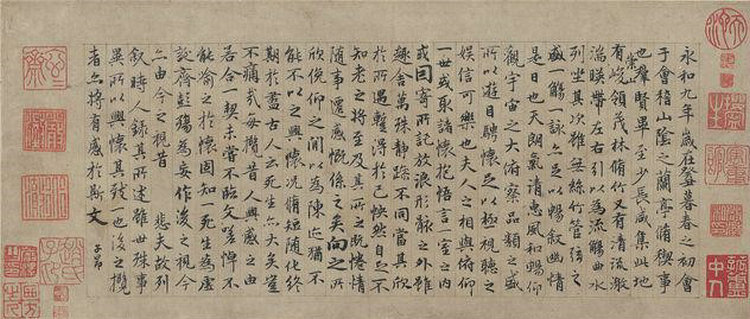 永和九年歲在癸丑暮春之初會
于會稽山陰之蘭亭脩稧事
也羣賢畢至少長咸集此地
有崇山峻領茂林脩竹又有清流激
湍暎帶左右引以為流觴曲水
列坐其次雖無絲竹管弦之
盛一觴一詠亦足以暢叙幽情
是日也天朗氣清惠風和暢仰
觀宇宙之大俯察品類之盛
所以遊目騁懷足以極視聽之
娛信可樂也夫人之相與俯仰
一世或取諸懷抱悟言一室之內
或因寄所託放浪形骸之外雖
趣舍萬殊静躁不同當其欣
於所遇暫得於己怏然自足不
知老之將至及其所之既惓情
隨事遷感慨係之矣向之所
欣俛仰之間以為陳迹猶不
能不以之興懷況脩短隨化終
期於盡古人云死生亦大矣豈
不痛哉每攬昔人興感之由
若合一契未嘗不臨文嗟悼不
能喻之於懷固知一死生為虛
誕齊彭殤為妄作後之視今
亦由今之視昔 悲夫故列
叙時人錄其所述雖世殊事
異所以興懷其致一也後之攬
者亦將有感於斯文
子昂